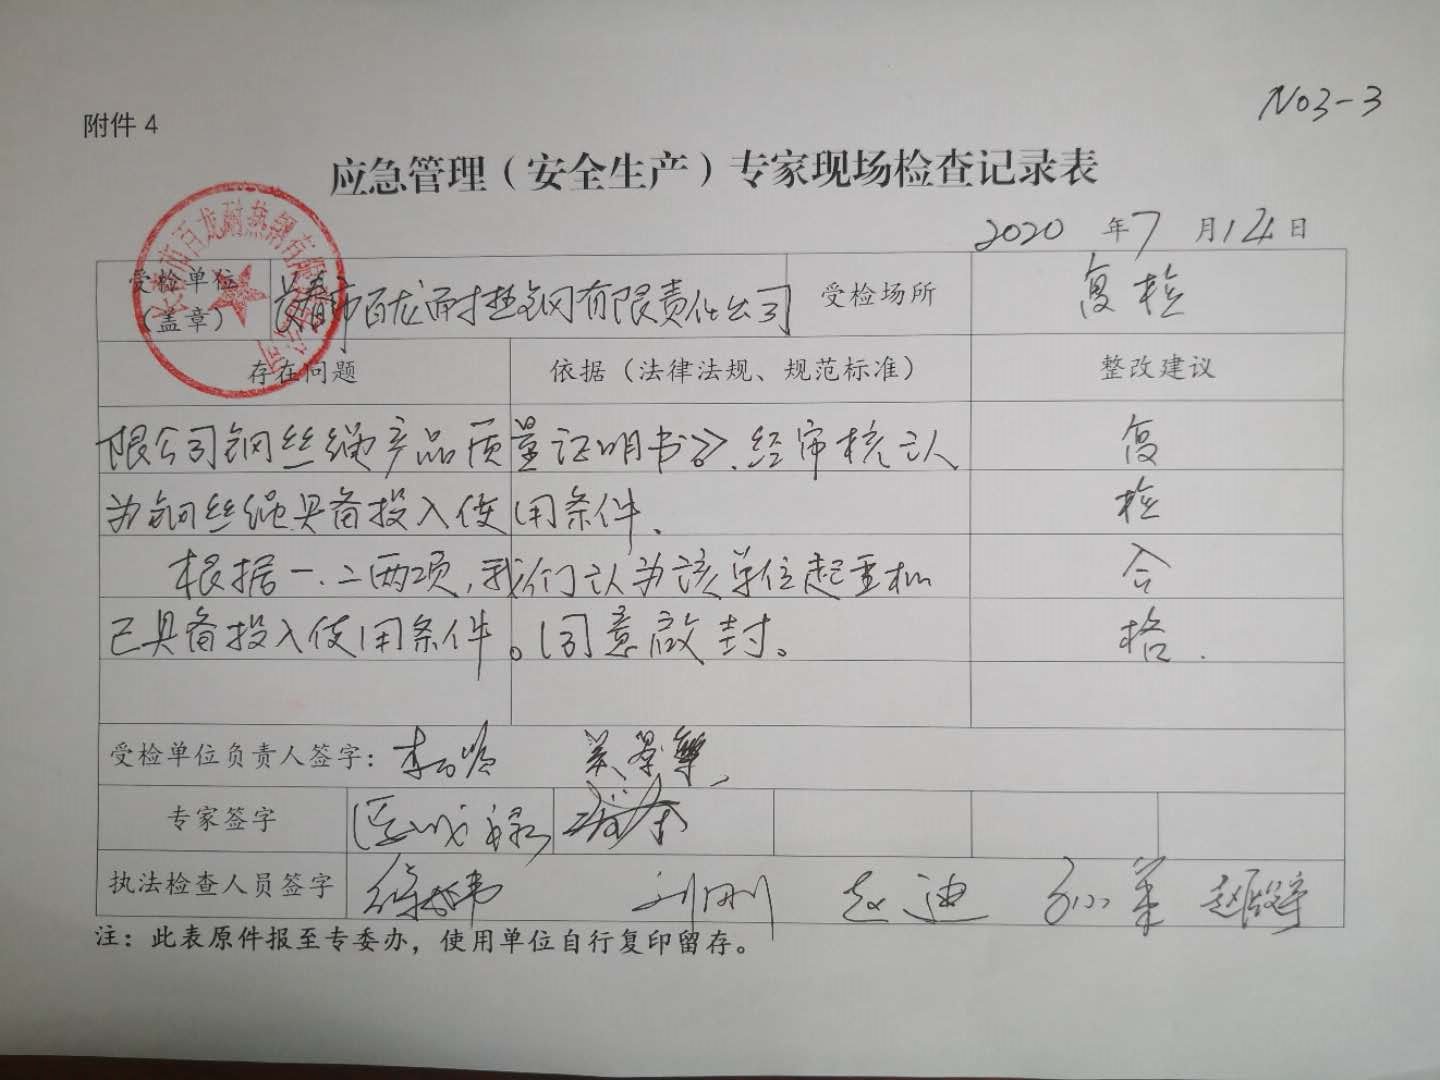 N03-3
附件 4
应急管理（安全生产）专家现场检查记录表
2020 年 7 月 14 日
受检单位（盖章） 长春市百龙耐热钢有限责任公司 受检场所 复检
存在问题 依据（法律法规、规范标准） 整改建议
限公司钢丝绳产品质量证明书》，经审核认 复
为钢丝绳具备投入使用条件、 检
根据一、二两项，我们认为该单位起重机 合
已具备投入使用条件。同意启封。 格.
受检单位负责人签字：
专家签字
执法检查人员签字 刘刚 赵迪
注：此表原件报至专委办，使用单位自行复印留存。